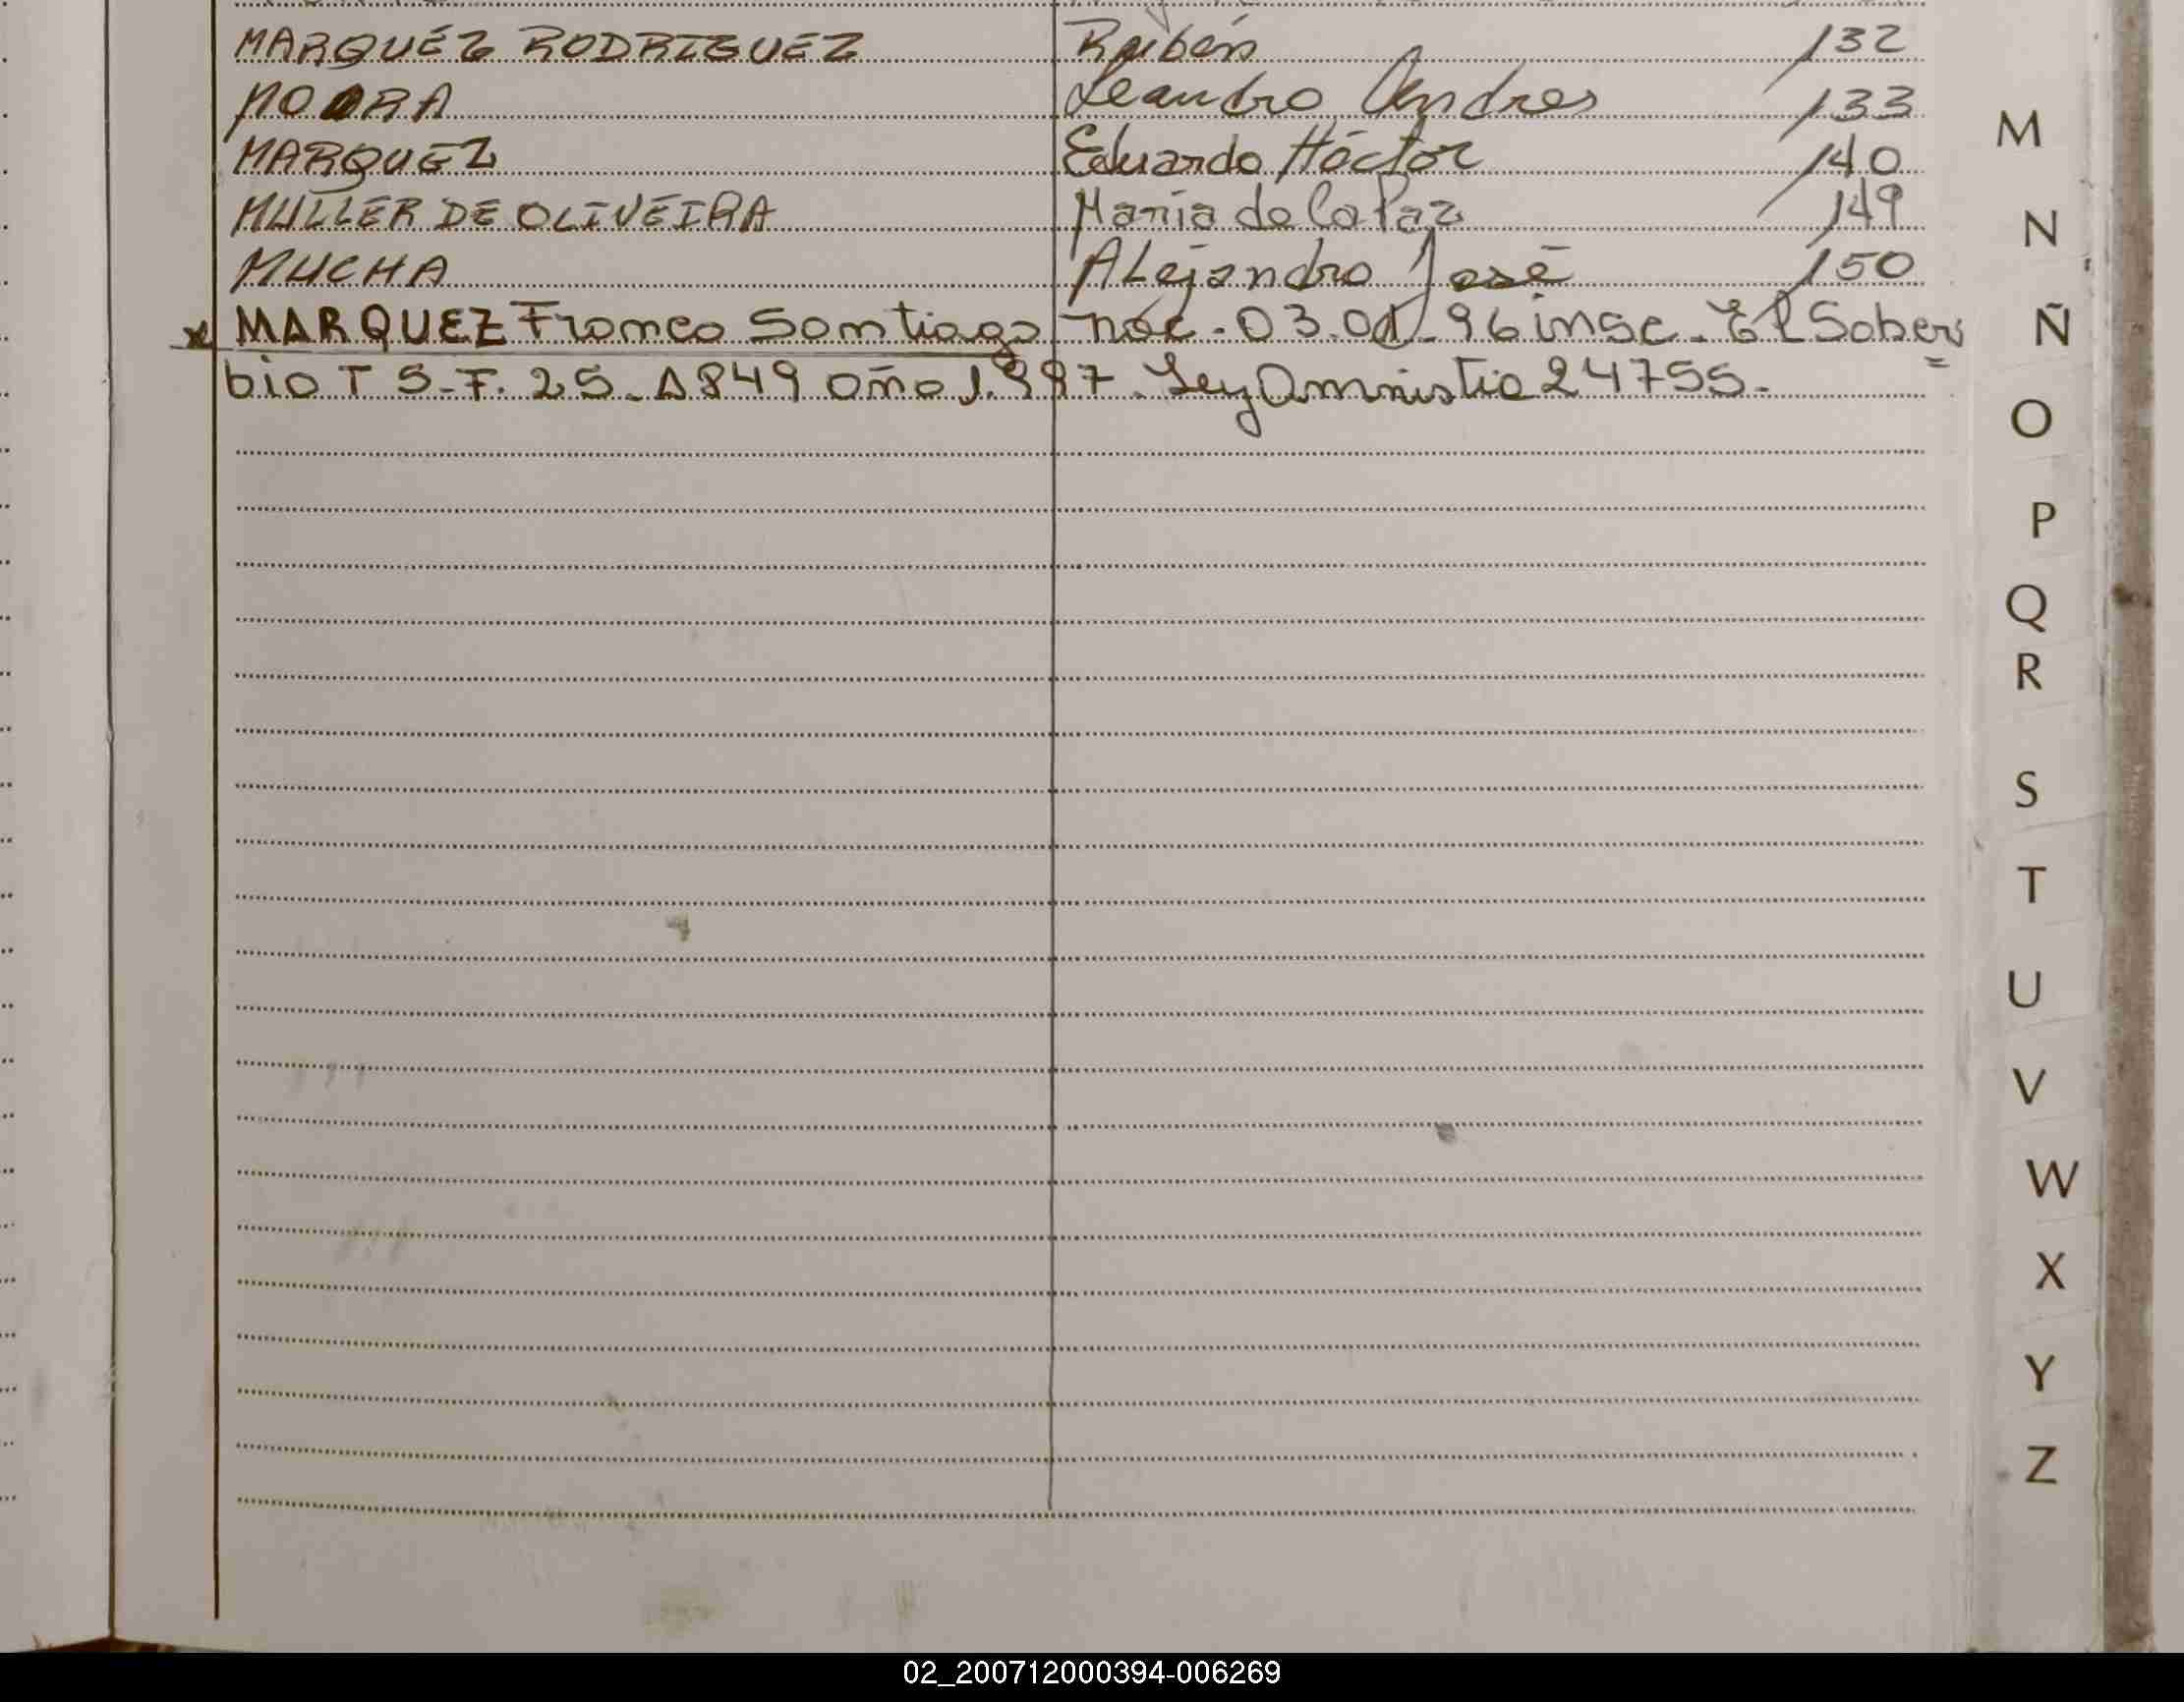 MARQUEZ RODRIGUEZ Rubén 132
MOORA Leandro Andres 133
MARQUEZ Eduardo Héctor 140
MULLER DE OLIVEIRA Maria de la Paz 149
MUCHA Alejandro José 150
x MARQUEZ Franco Santiago nac. 03.01.96 insc. El Sober=
bio T S-F. 25. A 849 año 1.997. Ley Amnistia 24755.
M
N
Ñ
O
P
Q
R
S
T
U
V
W
X
Y
Z
02_200712000394-006269